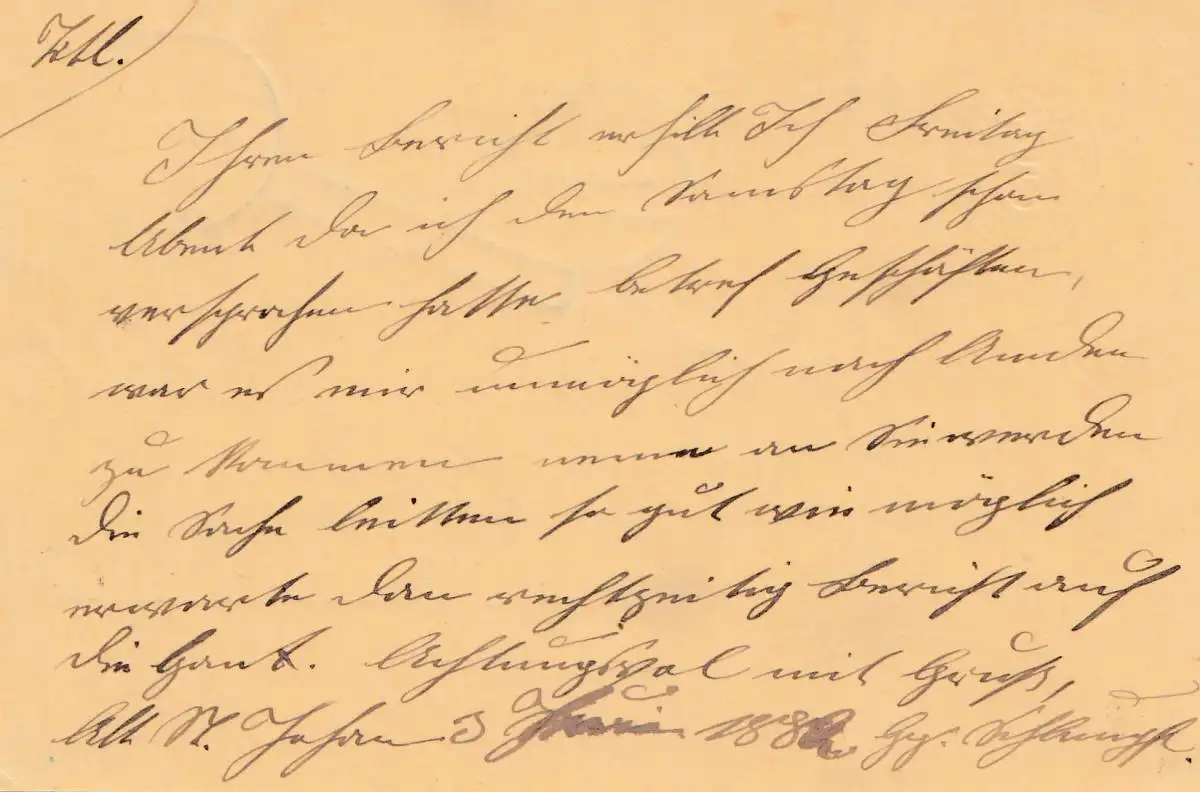 Ttl.
Ihren Bericht erhilt Ich Freitag
Abent da ich den Samstag schon
versprochen hatte betref Geschäften,
war es mir unmöglich nach Amden
zu kommen neme an Sie werden
die Sache leitten so gut wie möglich
erwarte dan rechtzeitig Bericht auf
die Gant. Achtungsvol mit Gruß,
Alt St. Johan 3 188